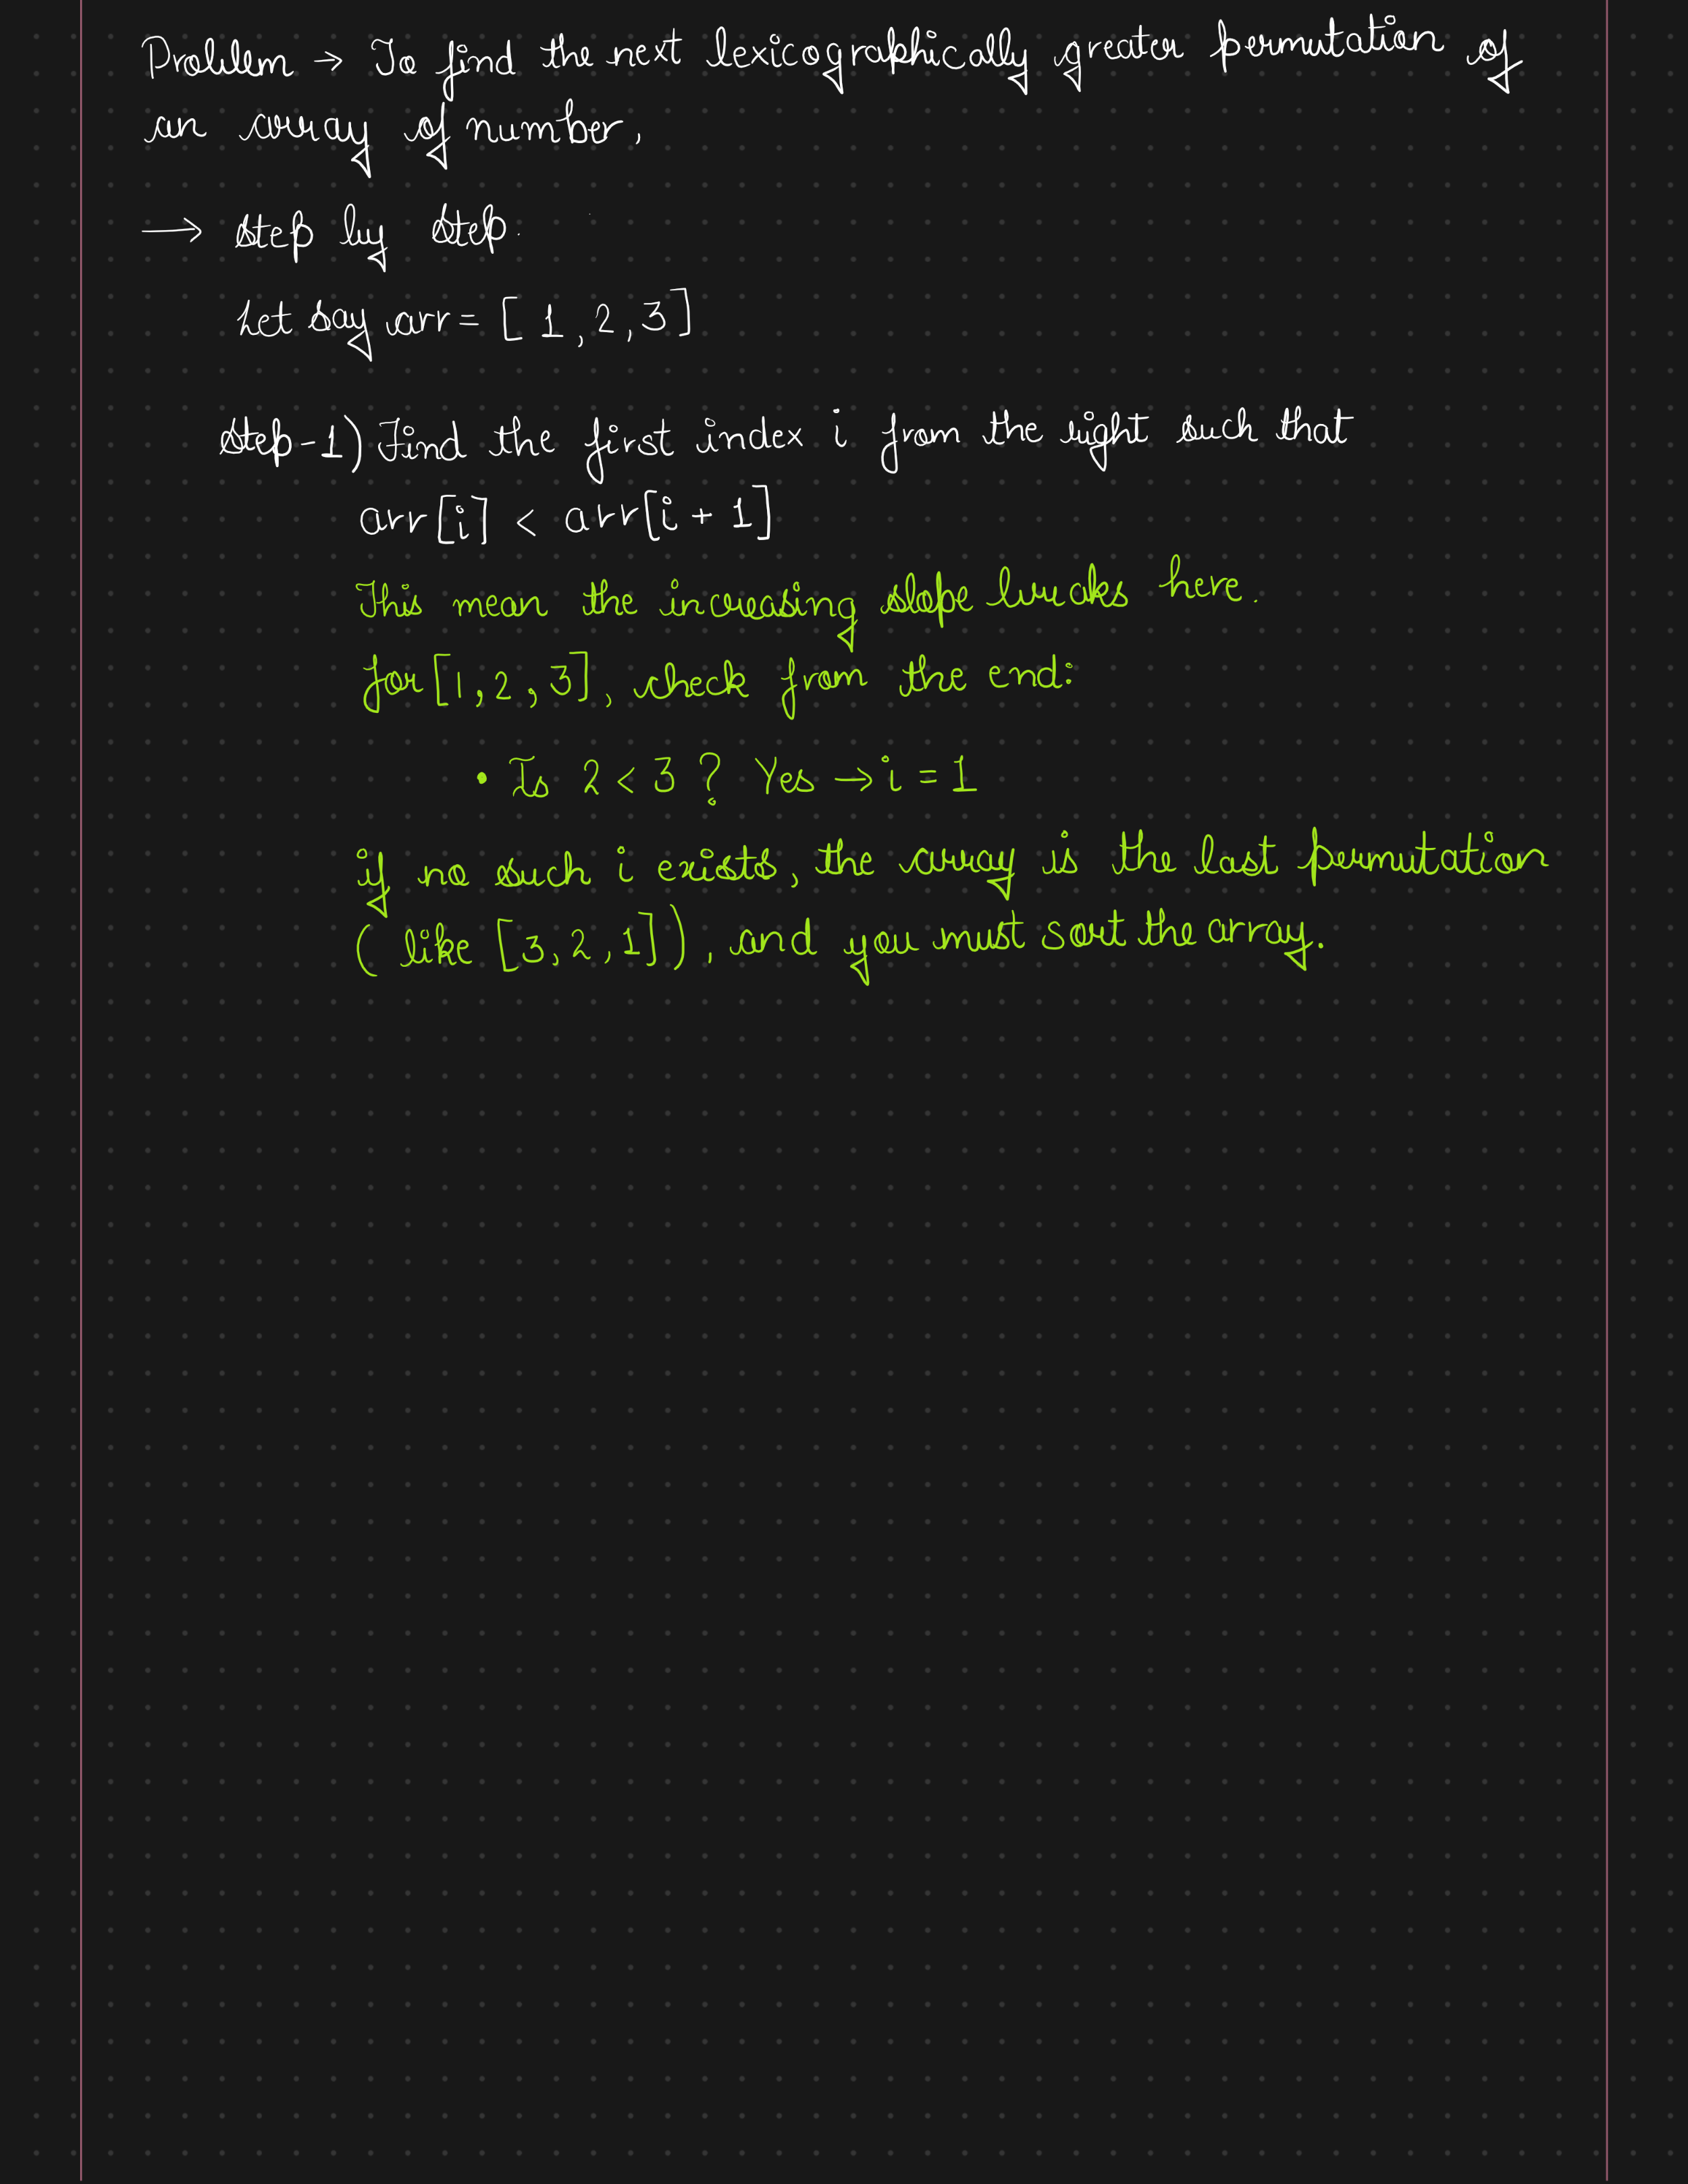 Problem → To find the next lexicographically greater permutation of
an array of number,
→ step by step.
Let say arr = [ 1, 2, 3 ]
Step-1) Find the first index i from the right such that
arr[i] < arr[i + 1]
This mean the increasing slope breaks here.
for [1, 2, 3], check from the end:
• Is 2 < 3 ? Yes → i = 1
if no such i exists, the array is the last permutation
( like [3, 2, 1]), and you must sort the array.